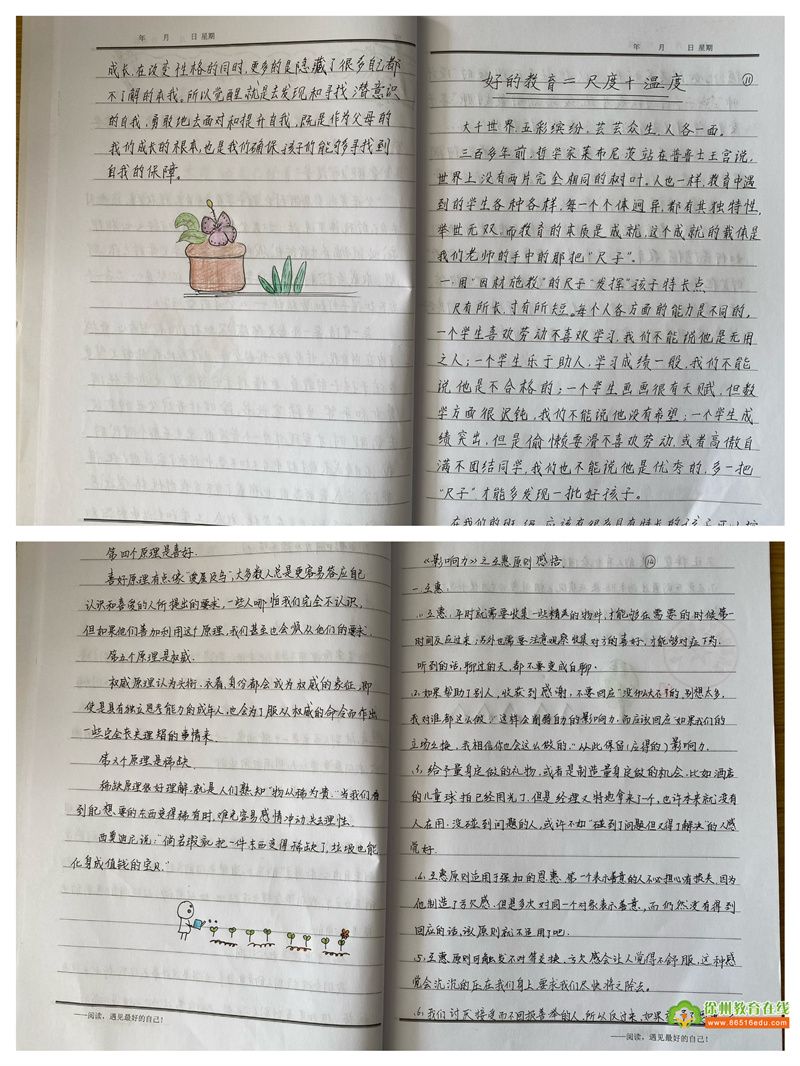 年 月 日 星期
成长,在改变性格的同时,更多的是隐藏了很多自己都
不了解的本我。所以觉醒就是去发现和寻找潜意识
的自我,勇敢地去面对和提升自我,既是作为父母的
我们成长的根本,也是我们确保孩子们能够寻找到
自我的保障。
年 月 日 星期
好的教育=尺度+温度
11
大千世界,五彩缤纷,芸芸众生,人各一面。
三百多年前,哲学家莱布尼茨站在普鲁士王宫说,
世界上没有两片完全相同的树叶。人也一样,教育中遇
到的学生各种各样,每一个个体迥异,都有其独特性,
举世无双。而教育的本质是成就,这个成就的载体是
我们老师的手中的那把“尺子”。
一.用“因材施教”的尺子“发挥”孩子特长点.
尺有所长,寸有所短。每个人各方面的能力是不同的,
一个学生喜欢劳动不喜欢学习,我们不能说他是无用
之人;一个学生乐于助人,学习成绩一般,我们不能
说他是不合格的;一个学生画画很有天赋,但数
学方面很迟钝,我们不能说他没有希望;一个学生成
绩突出,但是偷懒耍滑不喜欢劳动,或者高傲自
满不团结同学,我们也不能说他是优秀的,多一把
“尺子”才能多发现一批好孩子。
第四个原理是喜好.
喜好原理有点像“爱屋及乌”,大多数人总是更容易答应自己
认识和喜爱的人所提出的要求,一些人哪怕我们完全不认识,
但如果他们善加利用这个原理,我们甚至也会顺从他们的要求.
第五个原理是权威.
权威原理认为头衔、衣着、身份都会成为权威的象征,即
使是具有独立思考能力的成年人,也会为了服从权威的命令而作出
一些完全丧失理智的事情来.
第六个原理是稀缺.
稀缺原理很好理解,就是人们熟知“物以稀为贵.”当我们看
到自己想要的东西变得稀有时,难免容易感情冲动失去理性.
西奥迪尼说:“倘若瑕疵把一件东西变得稀缺了,垃圾也能
化身成值钱的宝贝.”
——阅读,遇见最好的自己!
《影响力》之互惠原则感悟
12
一.互惠:
⑴互惠,平时就需要收集一些精美的物件,才能够在需要的时候第一
时间反应过来;另外也需要注意观察收集对方的喜好,才能够对症下药.
听到的话,聊过的天,都不要变成白聊.
⑵如果帮助了别人,收获到感谢,不要回应“没什么大不了的,别想太多,
我对谁都这么做.”这样会削弱自身的影响力.而应该回应“如果我们的
立场互换,我相信你也会这么做的.”从此保留(应得的)影响力.
⑶给予量身定做的礼物,或者是制造量身定做的机会,比如酒店
的儿童球拍已经用光了,但是经理又特地拿来了一个,也许本来就没有
人在用.没碰到问题的人,或许不如“碰到了问题但又得了解决”的人感
觉好.
⑷互惠原则适用于强加的恩惠.第一个表示善意的人不必担心有损失.因为
他制造了亏欠感.但是多次对同一个对象表示善意,而仍然没有得到
回应的话,该原则就不适用了吧.
⑸互惠原则可触发不对等交换,亏欠感会让人觉得不舒服,这种感
觉会沉沉的压在我们身上,要求我们尽快将之除去.
⑹我们讨厌接受而不回报善举的人,所以反过来,如果
——阅读,遇见最好的自己!
徐州教育在线
www.86516edu.com